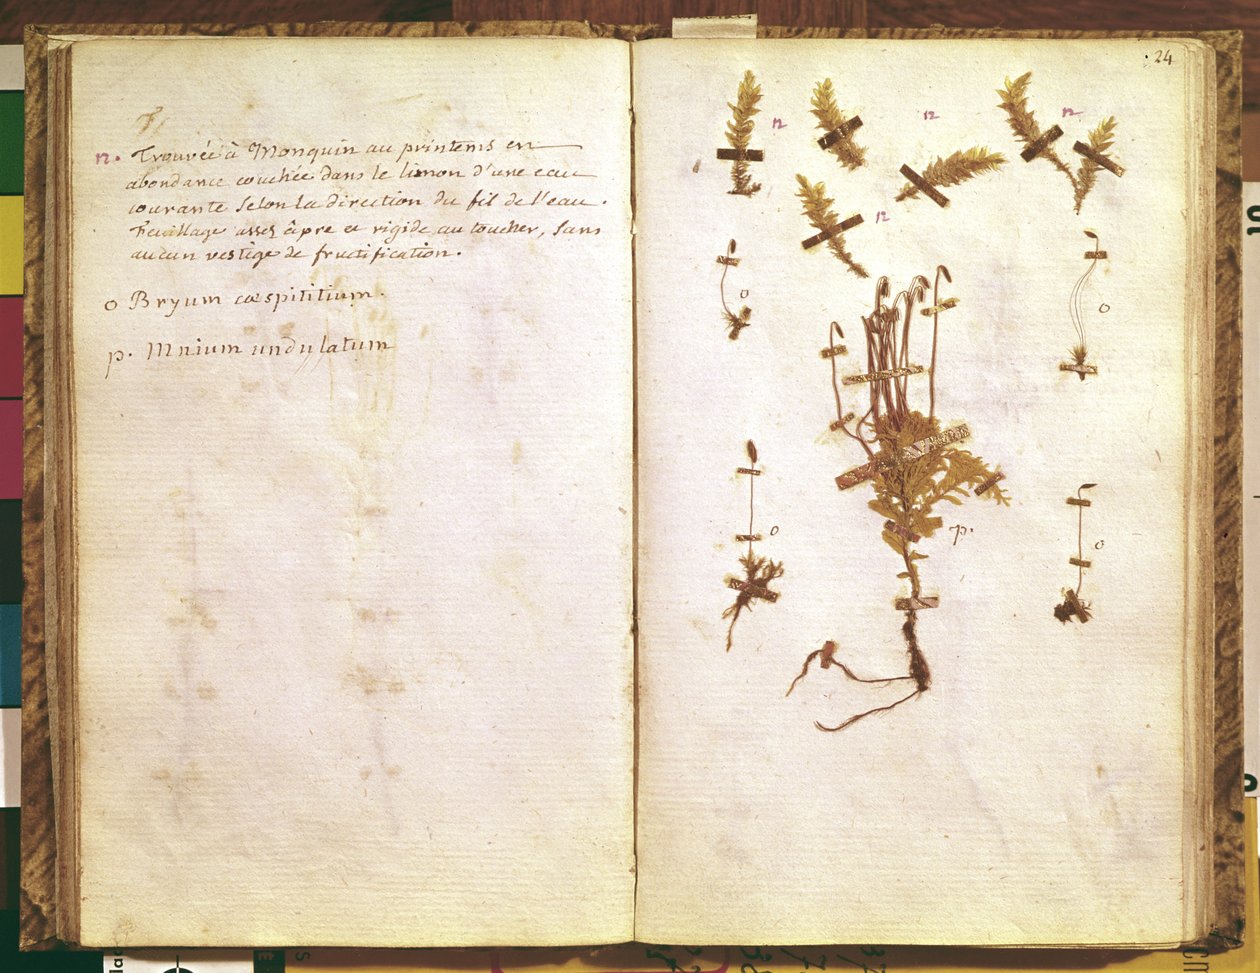 12. Trouvée à Monquin au printems en
abondance couchée dans le limon d'une eau
courante selon la direction du fil de l'eau.
Feuillage assez âpre et rigide au toucher, sans
aucun vestige de fructification.
o Bryum cæspititium.
p. Mnium undulatum
24
12
12
12
12
o
o
p.
o
o